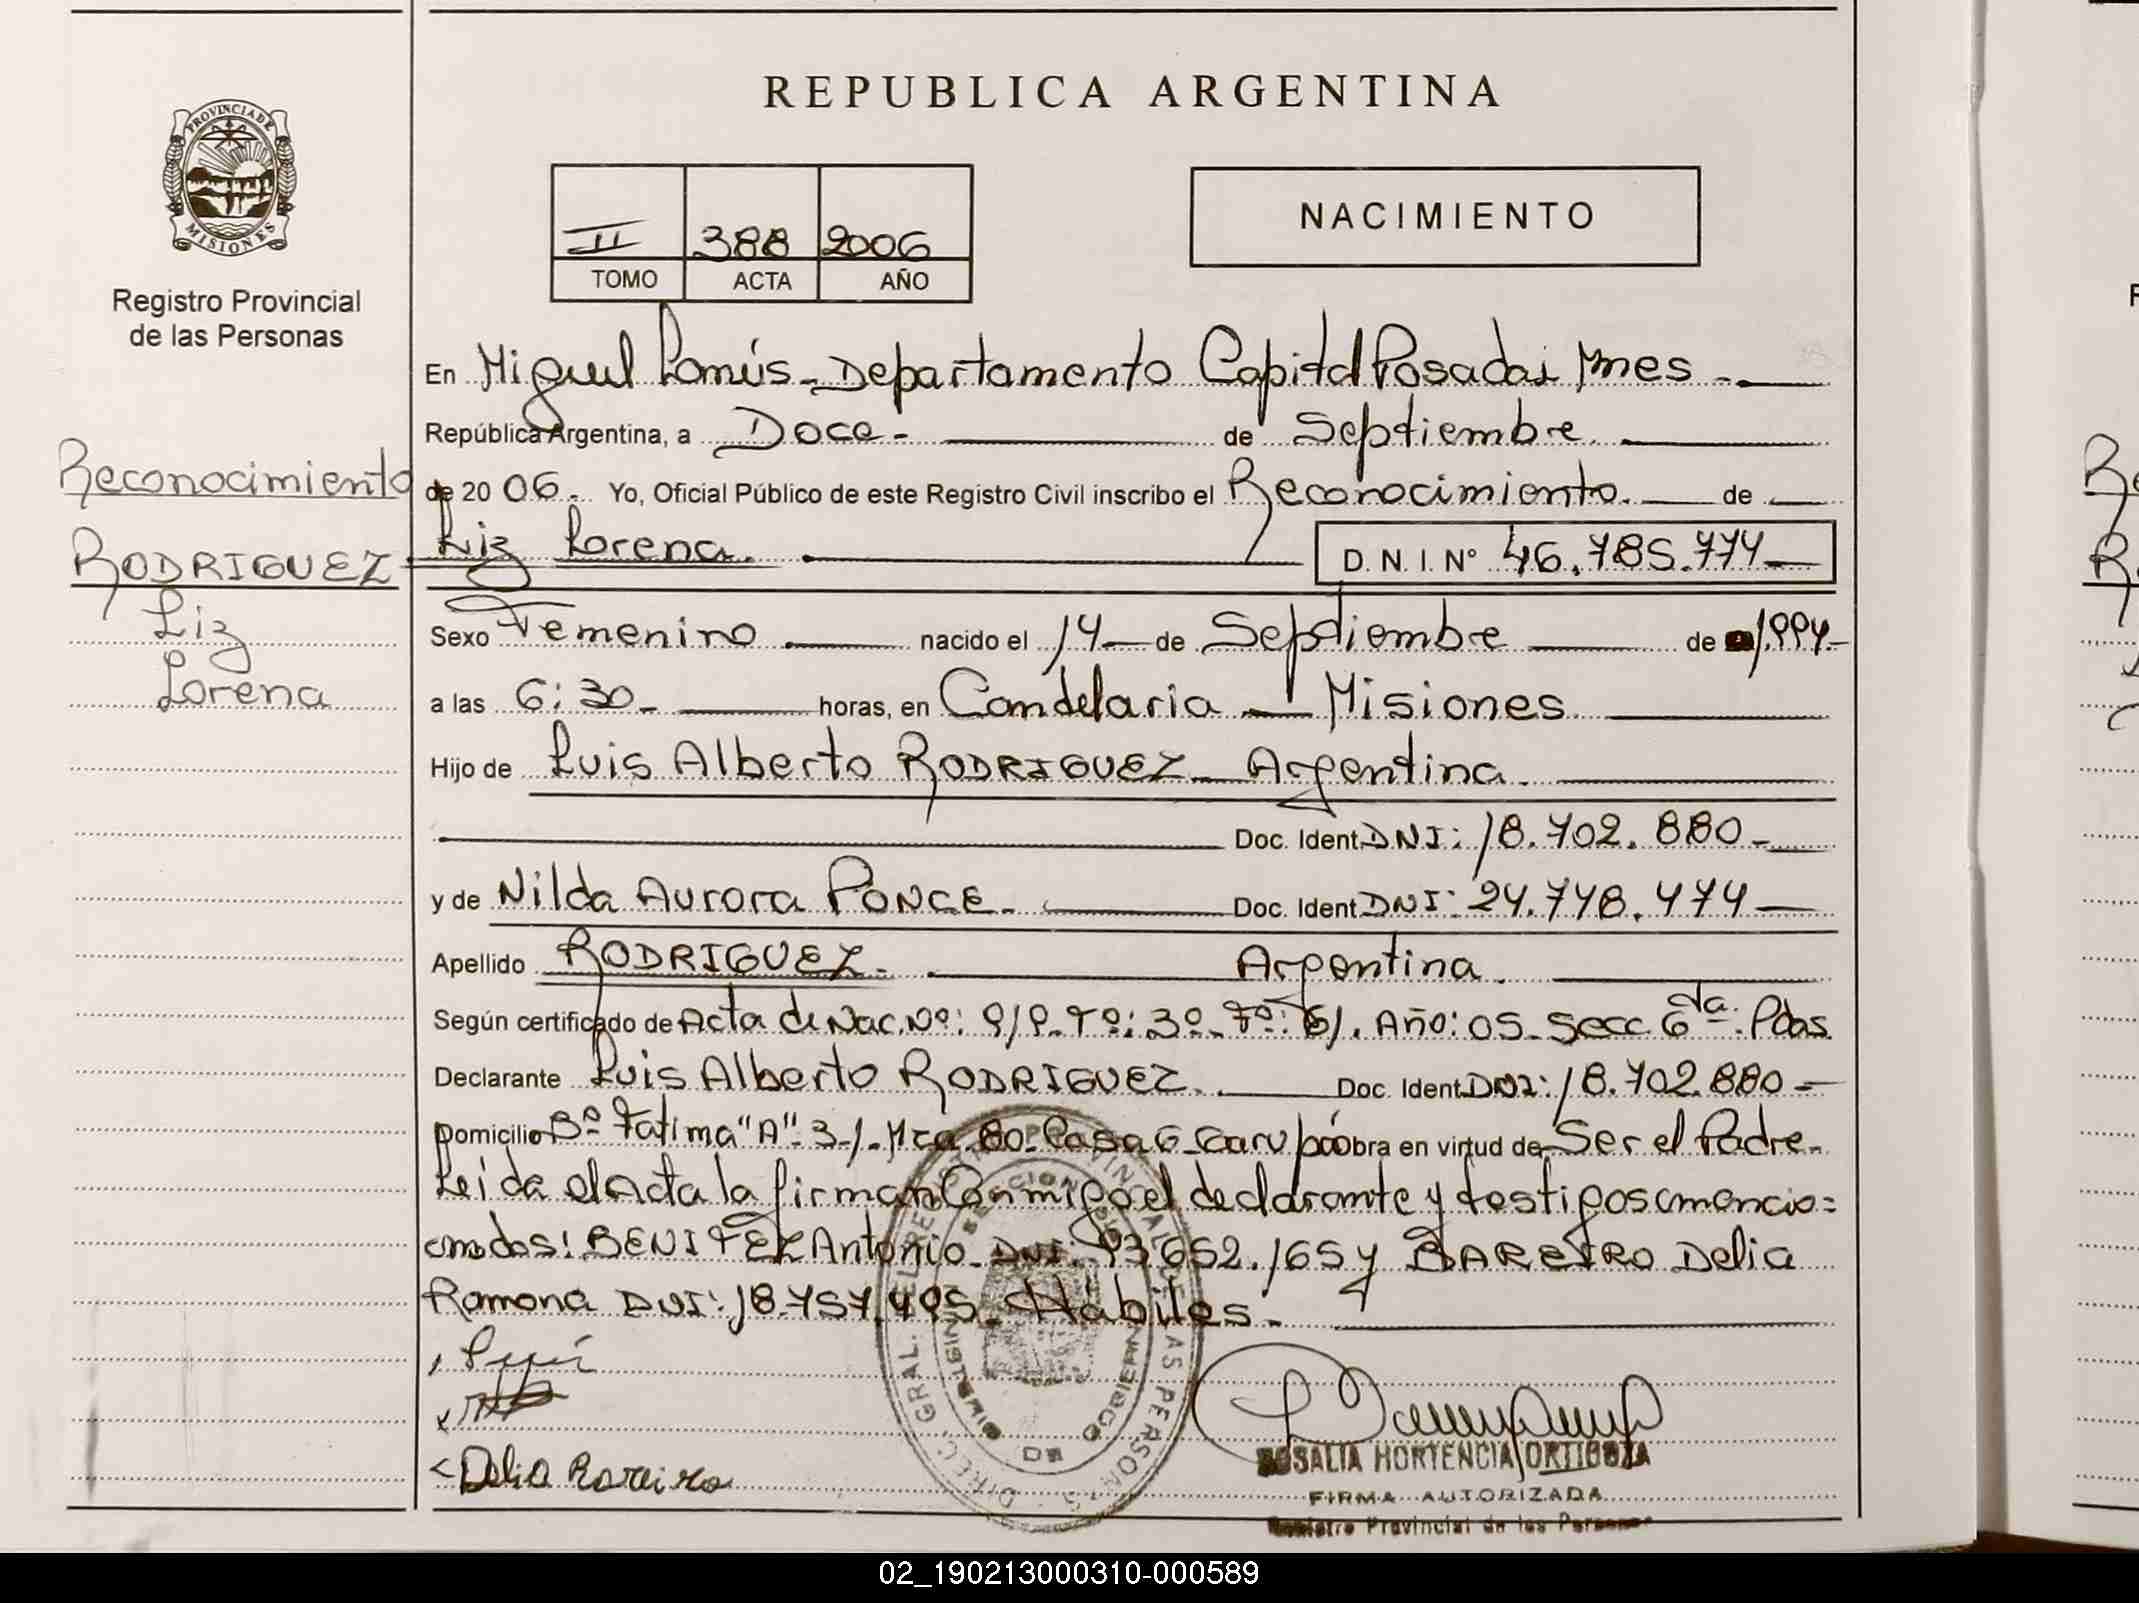 REPUBLICA ARGENTINA
PROVINCIA DE
MISIONES
Registro Provincial
de las Personas
II 388 2006
TOMO ACTA AÑO
NACIMIENTO
Reconocimiento
RODRIGUEZ
Liz
Lorena
En Miguel Lanús - Departamento Capital Posadas Mnes -
República Argentina, a Doce - de Septiembre
de 20 06 - Yo, Oficial Público de este Registro Civil inscribo el Reconocimiento. de
Liz Lorena. D. N. I. N° 46.785.774
Sexo Femenino nacido el 14 de Septiembre de 1.994 -
a las 6:30 - horas, en Candelaria - Misiones
Hijo de Luis Alberto RODRIGUEZ - Argentina.
Doc. Ident. DNI: 18.702.880 -
y de Nilda Aurora PONCE - Doc. Ident. DNI: 24.748.474
Apellido RODRIGUEZ - Argentina
Según certificado de Acta de Nac. Nº: 919 - Tº: 3º - Fº: 61. Año: 05 - Secc 6ta. Pdas.
Declarante Luis Alberto RODRIGUEZ. Doc. Ident. DNI: 18.702.880 -
Domicilio Bº Fatima "A" - 3-/- Mza. 80 - Casa 6 - Garupá obra en virtud de Ser el Padre -
Leida el Acta la firman Conmigo el declarante y testigos mencio=
nados: BENITEZ Antonio - DNI: 93652.165 y BAREIRO Delia
Ramona DNI: 18.757.495 - Hábiles -
Delia Bareiro
DIREC. GRAL. DEL REGISTRO PROVINCIAL DE LAS PERSONAS
ROSALIA HORTENCIA ORTIGOZA
FIRMA AUTORIZADA
Registro Provincial de las Personas
02_190213000310-000589